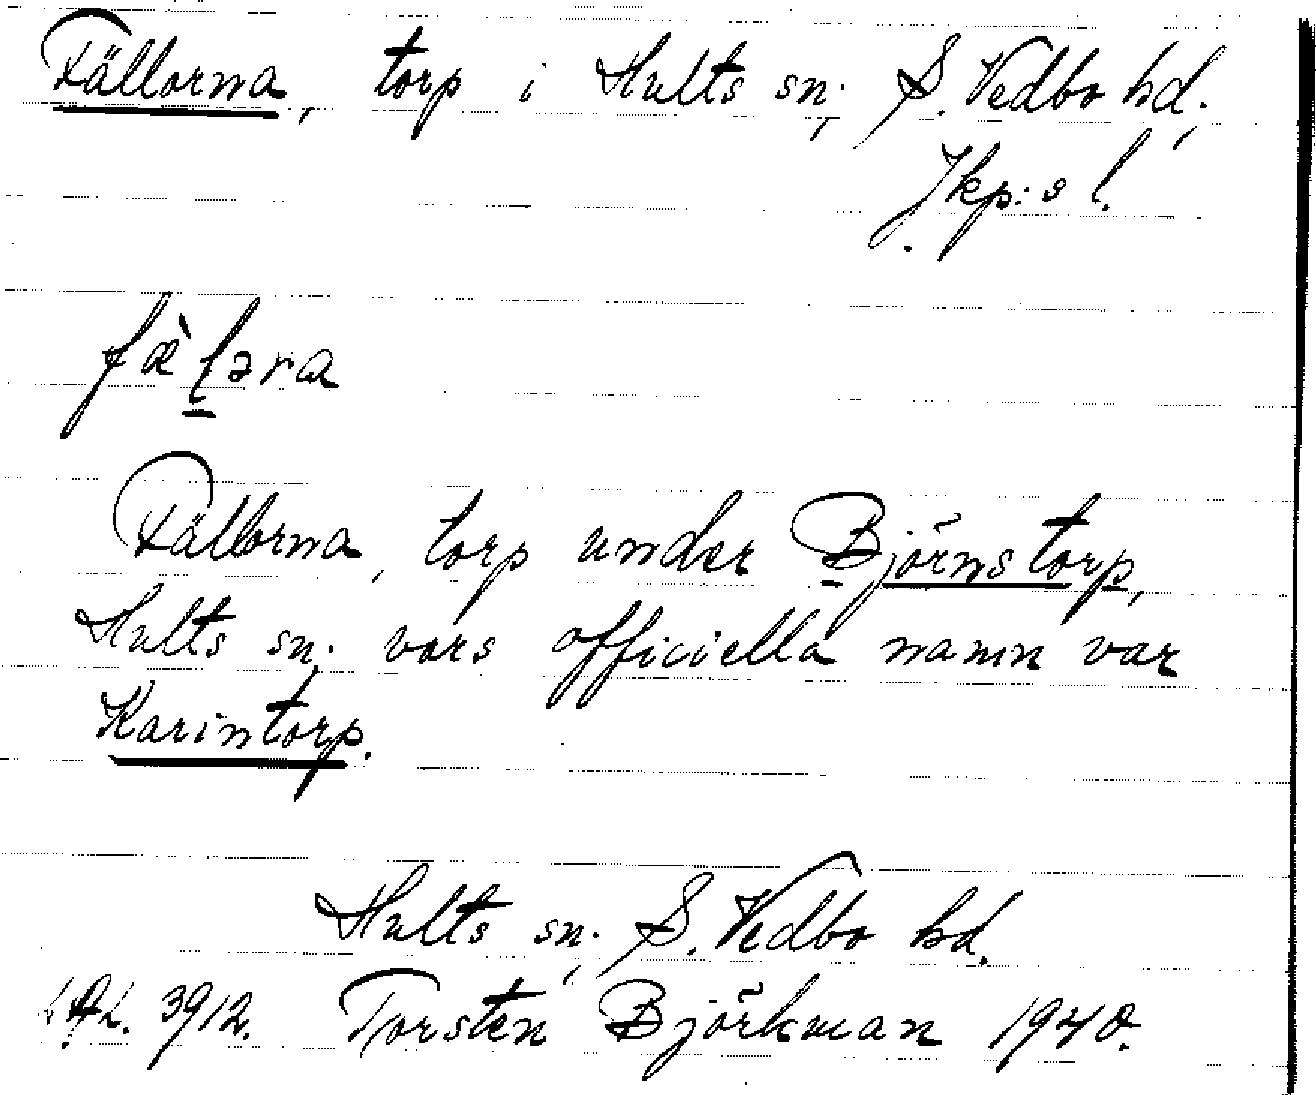 Fällorna, torp i Hults sn; S. Vedbo hd;
Jkp:s l.
fæ̀l̲əra
Fällorna, torp under Björnstorp,
Hults sn; vars officiella namn var
Karintorp.
Hults sn; S. Vedbo hd.
3912. Torsten Björkman 1940.